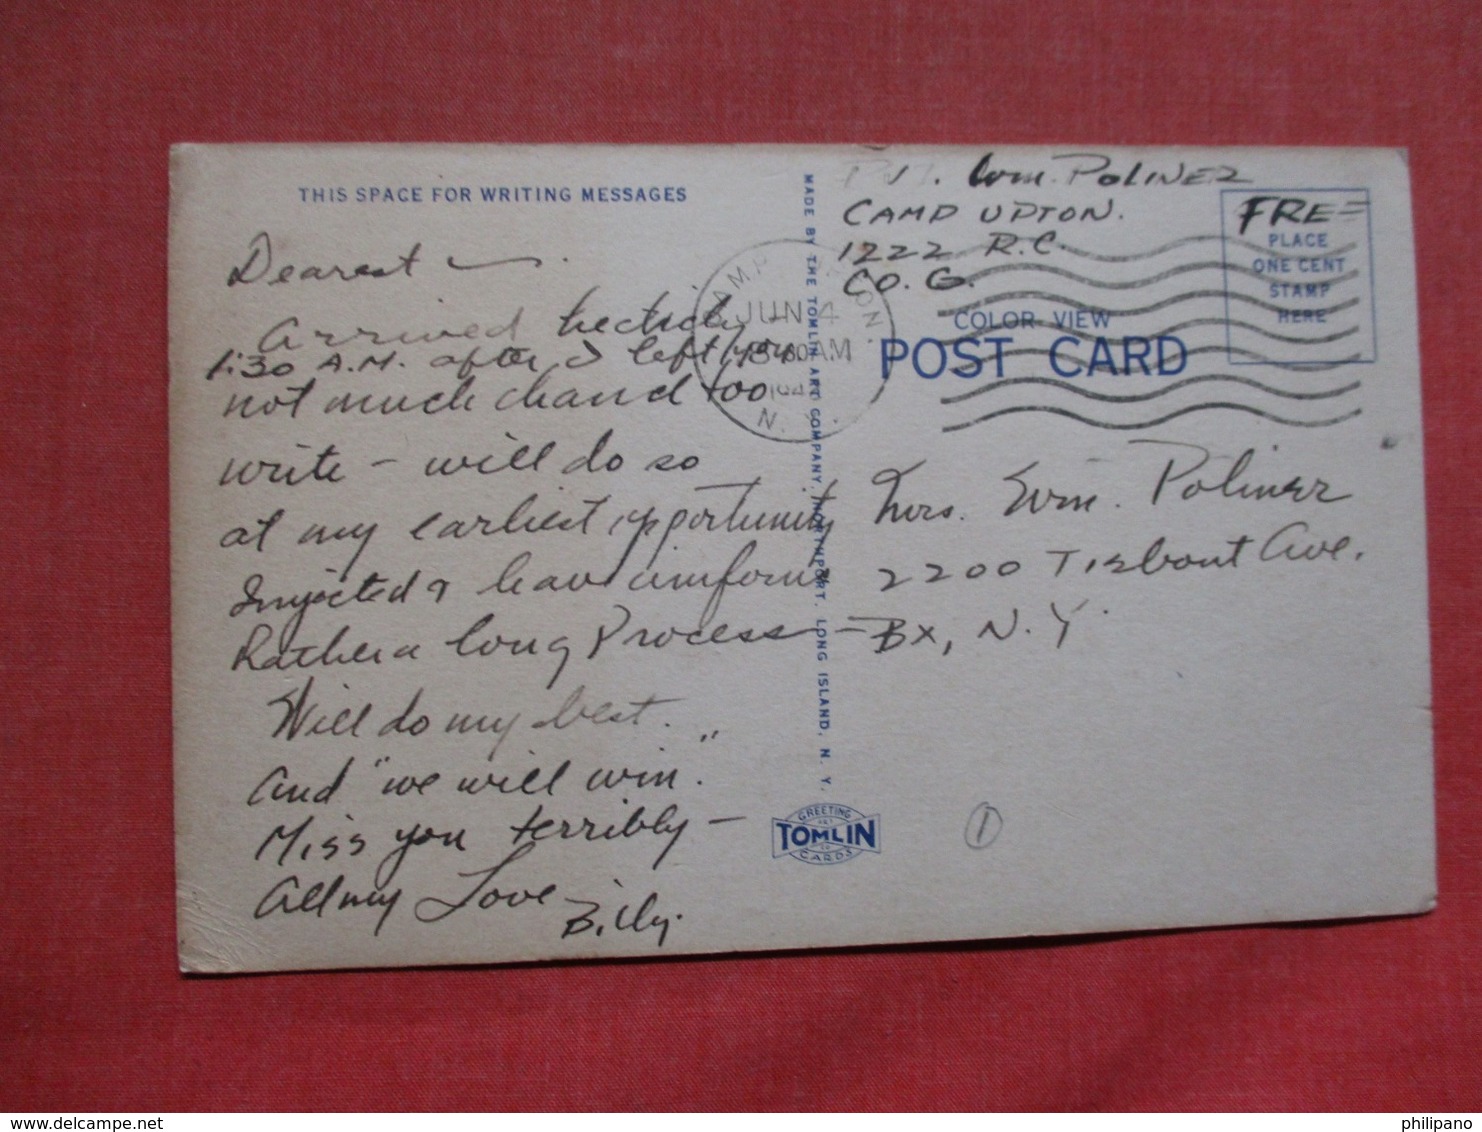 THIS SPACE FOR WRITING MESSAGES
Dearest —.
Arrived hecticly –
1:30 A.M. after I left you
not much chance too
write – will do so
at my earliest opportunity
Injected & have uniforms
Rather a long Process –
Will do my best.
And "we will win."
Miss you terribly –
All my Love
Billy.
MADE BY THE TOMLIN ART COMPANY, NORTHPORT, LONG ISLAND, N. Y.
GREETING
TOMLIN
CARDS
Pvt. Wm. POLINER
CAMP UPTON.
1222 R.C.
CO. G.
FREE
PLACE
ONE CENT
STAMP
HERE
CAMP UPTON
JUN 4
AM
N. Y.
COLOR VIEW
POST CARD
Mrs. Wm. Poliner
2200 Tiebout Ave.
BX, N.Y.
1
philipano